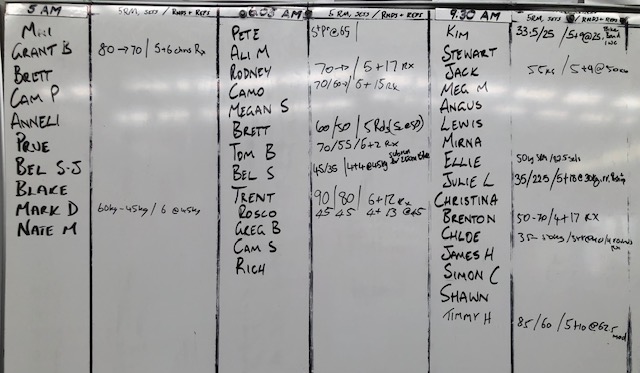 5 AM 5RM, SETS / RNDS + REPS
Grant B 80→70 / 5+6 Rx
Brett
Cam P
Anneli
Prue
Bel S-J
Blake
Mark D 60kg-45kg / 6 @45kg
Nate M
AM 5 RM, SETS / RNDS + REPS
Pete @65
Ali M
Rodney 70 / 5+17 Rx
Camo 70/60 / 6+15 Rx
Megan S
Brett 60/50 / 5 Rds
Tom B 70/55 / 6+2 Rx
Bel S 45/35 / 4+4@45kg
Trent 90 / 80 / 6+12 Rx
Rosco 45 45 4+13 @45
Greg B
Cam S
Rich
9.30 AM 5RM, SETS / RNDS + REPS
Kim 33.5/25 / 5+9@25
Stewart
Jack 55kg / 5+9@50kg
Meg M
Angus
Lewis
Mirna
Ellie 50kg
Julie L 35/22.5 / 5+18@30kg
Christina
Brenton 50-70 / 4+17 Rx
Chloe
James H
Simon C
Shawn
Timmy H 85/60 / 5+10@62.5 mod